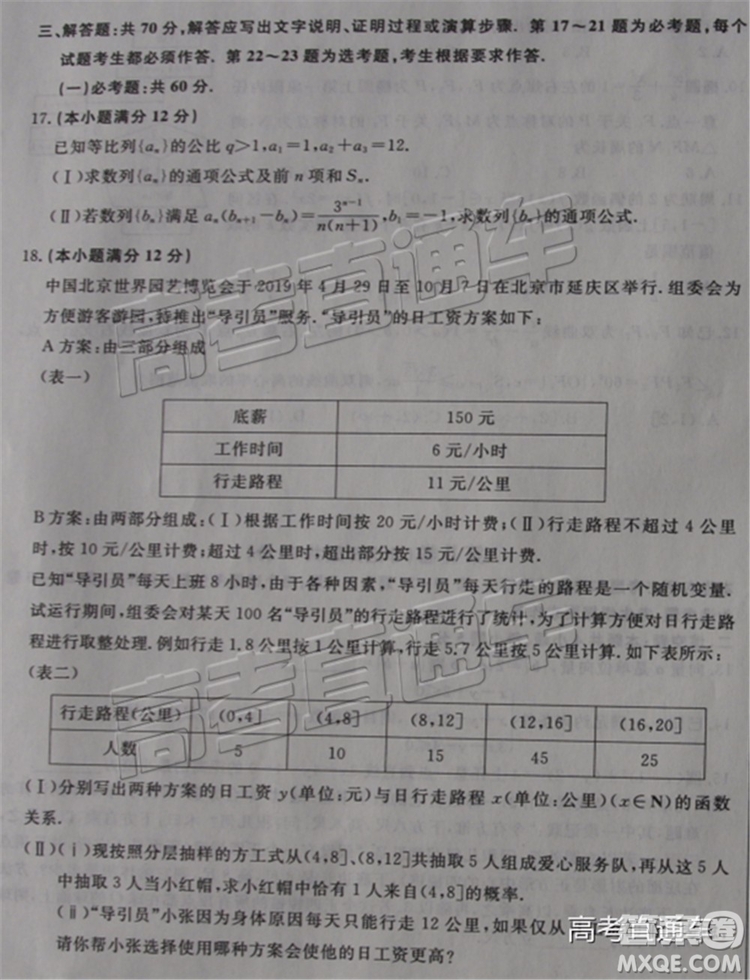 三、解答题:共 70 分,解答应写出文字说明、证明过程或演算步骤. 第 17～21 题为必考题,每个
试题考生都必须作答. 第 22～23 题为选考题,考生根据要求作答.
(一)必考题:共 60 分.
17.(本小题满分 12 分)
已知等比列{aₙ}的公比 q>1,a₁=1,a₂+a₃=12.
(Ⅰ)求数列{aₙ}的通项公式及前 n 项和 Sₙ.
(Ⅱ)若数列{bₙ}满足 aₙ(bₙ₊₁−bₙ)=3ⁿ⁻¹/n(n+1),b₁=−1,求数列{bₙ}的通项公式.
18.(本小题满分 12 分)
中国北京世界园艺博览会于 2019 年 4 月 29 日至 10 月 7 日在北京市延庆区举行. 组委会为
方便游客游园,特推出“导引员”服务.“导引员”的日工资方案如下:
A 方案:由三部分组成
(表一)
底薪 150 元
工作时间 6 元/小时
行走路程 11 元/公里
B 方案:由两部分组成:(Ⅰ)根据工作时间按 20 元/小时计费;(Ⅱ)行走路程不超过 4 公里
时,按 10 元/公里计费;超过 4 公里时,超出部分按 15 元/公里计费.
已知“导引员”每天上班 8 小时,由于各种因素,“导引员”每天行走的路程是一个随机变量.
试运行期间,组委会对某天 100 名“导引员”的行走路程进行了统计,为了计算方便对日行走路
程进行取整处理. 例如行走 1.8 公里按 1 公里计算,行走 5.7 公里按 5 公里计算. 如下表所示:
(表二)
行走路程(公里) (0,4] (4,8] (8,12] (12,16] (16,20]
人数 5 10 15 45 25
(Ⅰ)分别写出两种方案的日工资 y(单位:元)与日行走路程 x(单位:公里)(x∈N)的函数
关系.
(Ⅱ)(ⅰ)现按照分层抽样的方工式从(4,8],(8,12]共抽取 5 人组成爱心服务队,再从这 5 人
中抽取 3 人当小红帽,求小红帽中恰有 1 人来自(4,8]的概率.
(ⅱ)“导引员”小张因为身体原因每天只能行走 12 公里,如果仅从
请你帮小张选择使用哪种方案会使他的日工资更高?
高考直通车
高考直通车
高考直通车
MXQE.COM